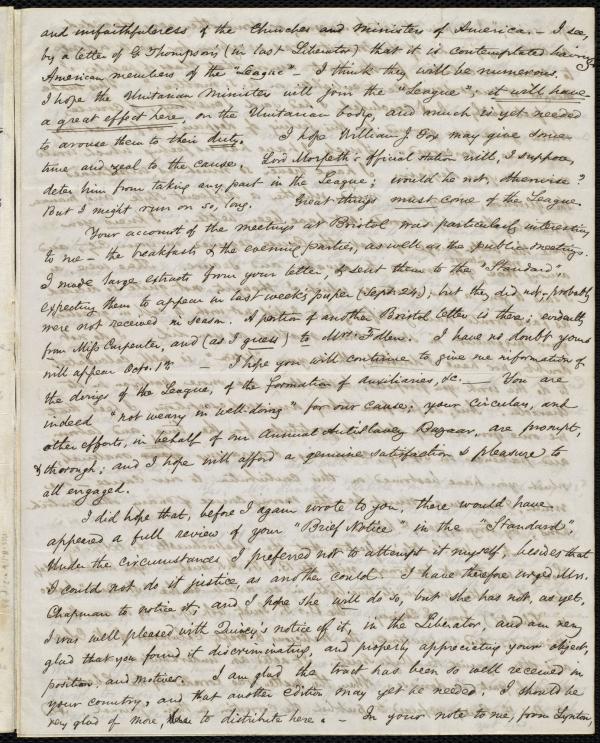 and unfaithfulness of the Churches and Ministers of America. - I see,
by a letter of G. Thompson's (in last Liberator) that it is contemplated having
American members of the "League" - I think they will be numerous.
I hope the Unitarian Ministers will join the "League"; it will have
a great effect here, on the Unitarian body, and much is yet needed
to arouse them to their duty. I hope William J. Fox may give some
time and zeal to the cause. Lord Morpeth's official station will, I suppose,
deter him from taking any part in the League; would he not, otherwise?
But I might run on so, long. Great things must come of the League.
Your account of the meetings at Bristol was particularly interesting
to me - the breakfasts & the evening parties, as well as the public meetings.
I made large extracts from your letter, & sent them to the "Standard"
expecting them to appear in last week's paper (Sept. 24); but they did not; probably
were not received in season. A portion of another Bristol letter is there; evidently
from Miss Carpenter, and (as I guess) to Mrs. Follen. I have no doubt yours
will appear Octr. 1st. - I hope you will continue to give me information of
the doings of the League, of the formation of auxiliaries, &c. - You are
indeed "not weary in well-doing" for our cause; your circulars, and
other efforts, in behalf of our Annual Antislavery Bazaar, are prompt,
& thorough; and I hope will afford a genuine satisfaction & pleasure to
all engaged.
I did hope that, before I again wrote to you, there would have
appeared a full review of your "Brief Notice" in the "Standard".
Under the circumstances I preferred not to attempt it myself, besides that
I could not do it justice as another could. I have therefore urged Mrs.
Chapman to notice it, and I hope she will do so, but she has not, as yet.
I was well pleased with Quincy's notice of it, in the Liberator, and am very
glad that you found it discriminating, and properly appreciating your object,
position, and motives. I am glad the tract has been so well received in
your country, and that another edition may yet be needed. I should be
very glad of more, to distribute here. - In your note to me, from Lynton,